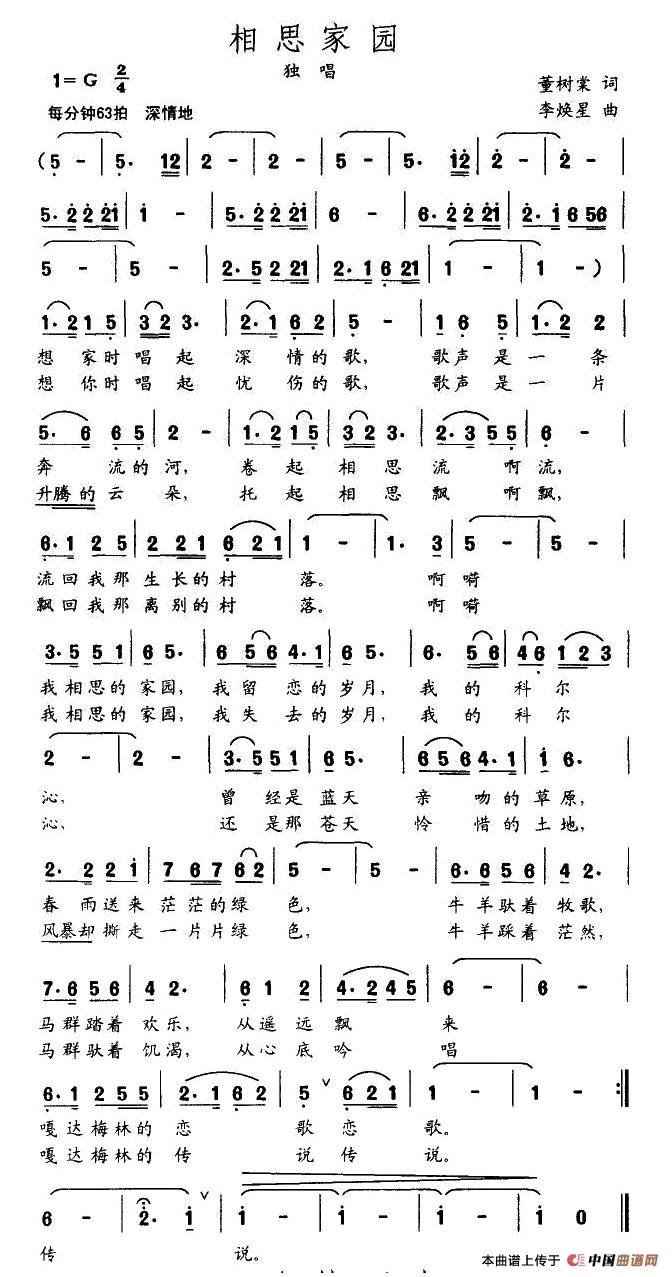 相思家园
独唱
1=G 2/4
董树棠 词
每分钟63拍 深情地
李焕星 曲
(5 - | 5· 12 | 2 - | 2 - | 5 - | 5· 12 | 2 - | 2 - |
5·2 2 21 | 1 - | 5·2 2 21 | 6 - | 6·2 2 21 | 2·1 6 56 |
5 - | 5 - | 2·5 2 21 | 2·1 6 21 | 1 - | 1 - ) |
1·2 1 5 | 3 2 3· | 2·1 6 2 | 5 - | 1 6 5 | 1·2 2 |
想家时唱起 深情的歌, 歌声是一条
想你时唱起 忧伤的歌, 歌声是一片
5·6 6 5 | 2 - | 1·2 1 5 | 3 2 3· | 2·3 5 5 | 6 - |
奔流的河, 卷起相思流啊流,
升腾的云朵, 托起相思飘啊飘,
6·1 2 5 | 2 2 1 | 6 2 1 | 1 - | 1· 3 | 5 - | 5 - |
流回我那生长的村落。 啊嗬
飘回我那离别的村落。 啊嗬
3·5 5 1 | 6 5· | 6 5 6 4·1 | 6 5· | 6· 5 6 | 4 6 1 2 3 |
我相思的家园, 我留恋的岁月, 我的科尔
我相思的家园, 我失去的岁月, 我的科尔
2 - | 2 - | 3·5 5 5 1 | 6 5· | 6 5 6 4·1 | 1 6· |
沁, 曾经是蓝天亲吻的草原,
沁, 还是那苍天怜惜的土地,
2· 2 2 1 | 7 6 7 6 2 | 5 - | 5 - | 6·6 5 6 | 4 2· |
春雨送来茫茫的绿色, 牛羊驮着牧歌,
风暴却撕走一片片绿色, 牛羊踩着茫然,
7·6 5 6 | 4 2· | 6 1 2 | 4·2 4 5 | 6 - | 6 - |
马群踏着欢乐, 从遥远飘来
马群驮着饥渴, 从心底吟唱
6·1 2 5 5 | 2·1 6 2 | 5 6 2 1 | 1 - | 1 - :‖
嘎达梅林的恋歌恋歌。
嘎达梅林的传说传说。
6 - | 2· 1 | 1 - | 1 - | 1 - | 1 0 ‖
传说。
本曲谱上传于 中国曲谱网